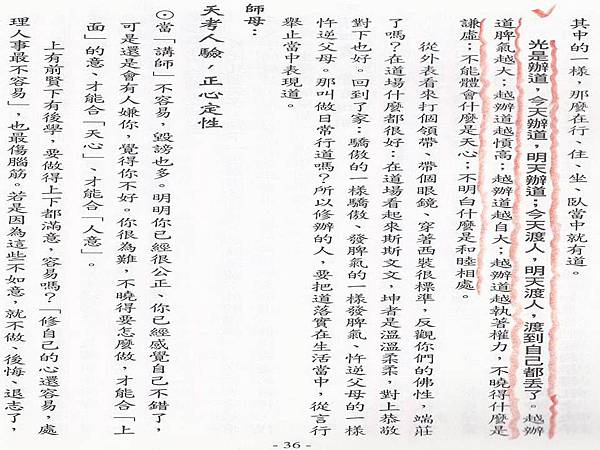 其中的一樣，那麼在行、住、坐、臥當中就有道。
光是辦道，今天辦道，明天辦道；今天渡人，明天渡人，渡到自己都丟了。越辦
道脾氣越大；越辦道越憤高；越辦道越自大；越辦道越執著權力，不曉得什麼是
謙虛；不能體會什麼是天心；不明白什麼是和睦相處。
從外表看來打個領帶、帶個眼鏡、穿著西裝很標準，反觀你們的佛性，端莊
了嗎？在道場什麼都很好；在道場看起來斯斯文文，坤者是溫溫柔柔，對上恭敬
對下也好。回到了家；驕傲的一樣驕傲、發脾氣的一樣發脾氣、忤逆父母的一樣
忤逆父母。那叫做日常行道嗎？所以修辦的人，要把道落實在生活當中，從言行
舉止當中表現道。
天考人驗，正心定性
師母：
⊙當「講師」不容易，毀謗也多。明明你已經很公正、你已經感覺自己不錯了，
可是還是會有人嫌你，覺得你不好。你很為難，不曉得要怎麼做，才能合「上
面」的意、才能合「天心」、才能合「人意」。
上有前賢下有後學，要做得上下都滿意，容易嗎？「修自己的心還容易，處
理人事最不容易」，也最傷腦筋。若是因為這些不如意，就不做、後悔、退志了，
- 36 -